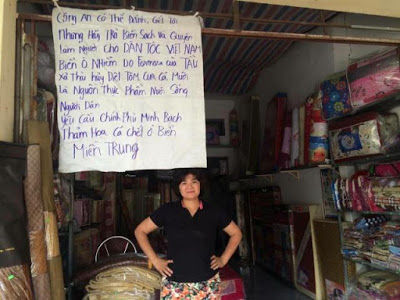 Công An Có Thể Đánh, Giết Tôi
Nhưng Hãy Trả Biển Sạch Và Quyền
Làm Người Cho DÂN TỘC VIỆT NAM
Biển Ô Nhiễm Do Formosa Của TÀU
Xả Thải Hủy Diệt Tôm Cua Cá Muối
Là Nguồn Thực Phẩm Nuôi Sống
Người Dân
Yêu Cầu Chính Phủ Minh Bạch
Thảm Họa Cá Chết Ở Biển
Miền Trung